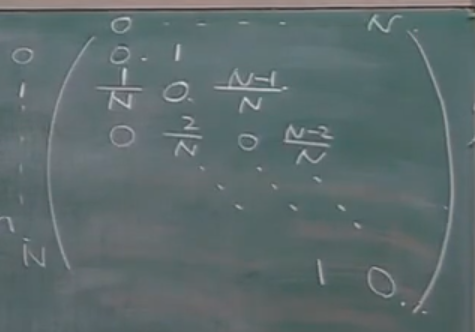 0 - - - - N
0 0 1
1 1/N 0 N-1/N
0 2/N 0 N-2/N
N 1 0